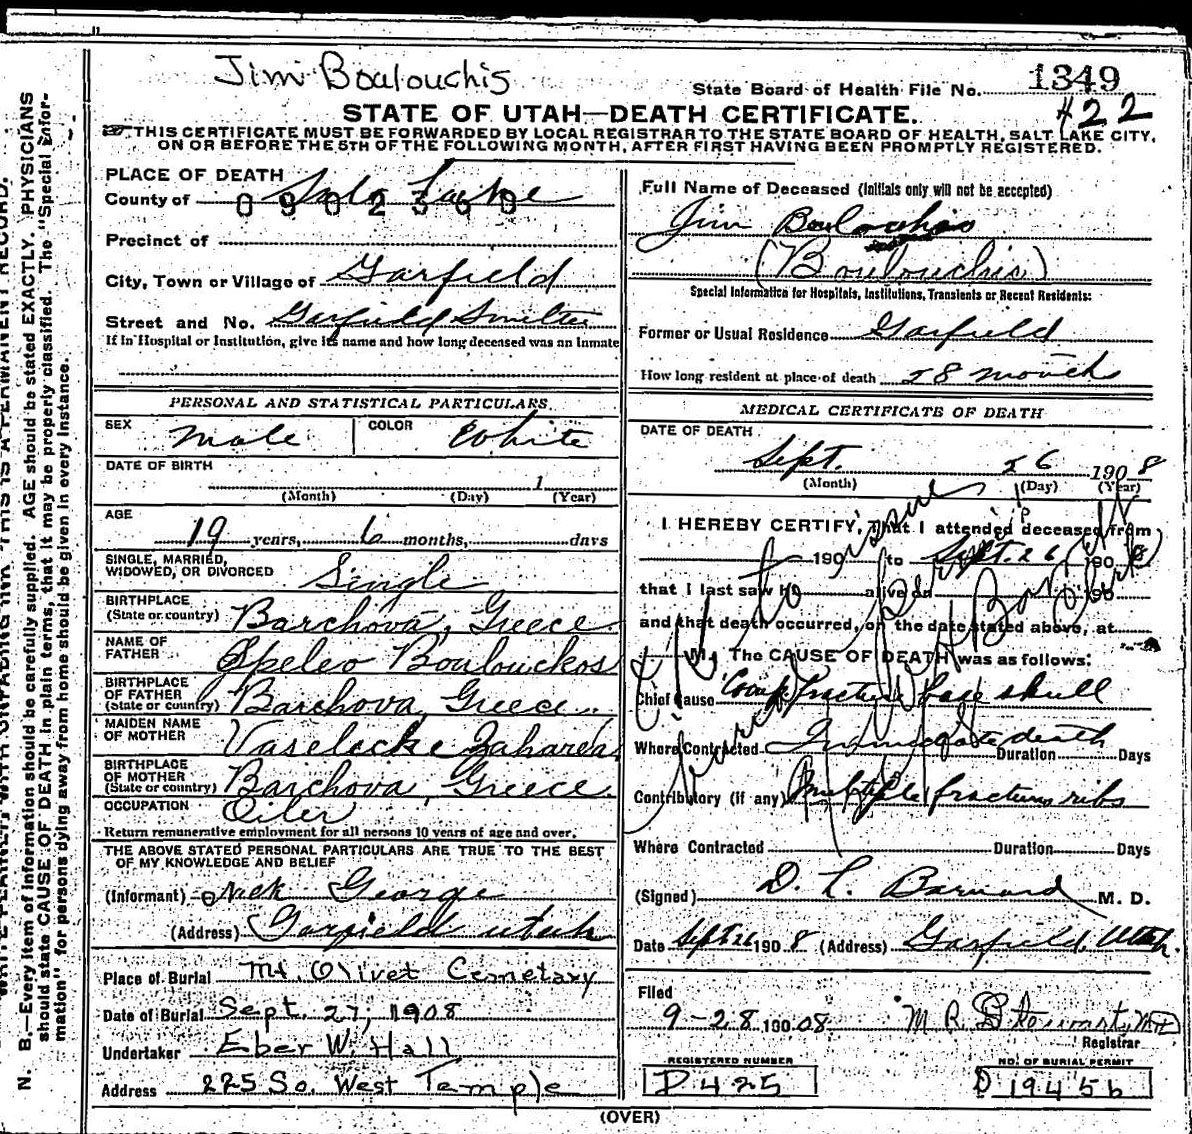 Jim Boulouchis
State Board of Health File No. 1349
422
STATE OF UTAH—DEATH CERTIFICATE.
THIS CERTIFICATE MUST BE FORWARDED BY LOCAL REGISTRAR TO THE STATE BOARD OF HEALTH, SALT LAKE CITY,
ON OR BEFORE THE 5TH OF THE FOLLOWING MONTH, AFTER FIRST HAVING BEEN PROMPTLY REGISTERED.
PLACE OF DEATH
County of Salt Lake
0902369
Precinct of
City, Town or Village of Garfield
Street and No. Garfield Smelter
If in Hospital or Institution, give its name and how long deceased was an inmate
PERSONAL AND STATISTICAL PARTICULARS.
SEX Male COLOR White
DATE OF BIRTH
1
(Month) (Day) (Year)
AGE
19 years, 6 months, days
SINGLE, MARRIED,
WIDOWED, OR DIVORCED Single
BIRTHPLACE
(State or country) Barchova, Greece
NAME OF
FATHER Speleo Boulouckos
BIRTHPLACE
OF FATHER
(State or country) Barchova, Greece
MAIDEN NAME
OF MOTHER Vaselecke Zaharea
BIRTHPLACE
OF MOTHER
(State or country) Barchova, Greece
OCCUPATION Oiler
Return remunerative employment for all persons 10 years of age and over.
THE ABOVE STATED PERSONAL PARTICULARS ARE TRUE TO THE BEST
OF MY KNOWLEDGE AND BELIEF
(Informant) Nick George
(Address) Garfield Utah
Place of Burial Mt. Olivet Cemetary
Date of Burial Sept. 27, 1908
Undertaker Eber W. Hall
Address 225 So. West Temple
Full Name of Deceased (Initials only will not be accepted)
Jim
(Boulouchis)
Special Information for Hospitals, Institutions, Transients or Recent Residents:
Former or Usual Residence Garfield
How long resident at place of death 28 month
MEDICAL CERTIFICATE OF DEATH
DATE OF DEATH
Sept. 26 1908
(Month) (Day) (Year)
I HEREBY CERTIFY, That I attended deceased from
190 to Sept. 26 1908
that I last saw h alive on 190
and that death occurred, on the date stated above, at
M. The CAUSE OF DEATH was as follows:
Chief Cause Comp. fracture base skull
Where Contracted Immediate death Duration Days
Contributory (if any) Multiple fracture ribs
Where Contracted Duration Days
(Signed) D. L. Barnard M. D.
Date Sept 26 1908 (Address) Garfield, Utah.
Filed
9-28 1908 M R Stewart, MD
Registrar
REGISTERED NUMBER
D425
NO. OF BURIAL PERMIT
D 19456
(OVER)
N. B.—Every item of information should be carefully supplied. AGE should be stated EXACTLY. PHYSICIANS
should state CAUSE OF DEATH in plain terms, that it may be properly classified. The "Special Infor-
mation" for persons dying away from home should be given in every instance.